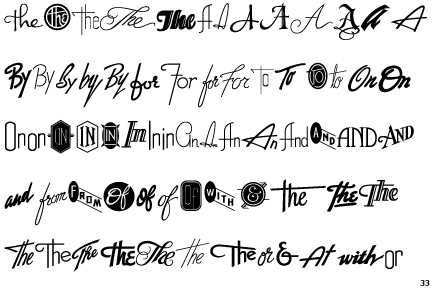 the the the The The A A A A A A A A
By By By by By for For for For To To To to On On
On on ON IN IN IN In In in An A An An And AND AND AND
and from FROM Of of of OF WITH & the The The
The The The The The the The or & At with or
33